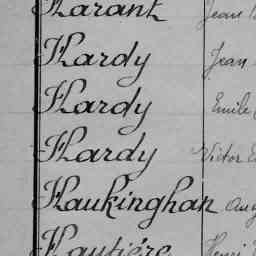 Harant Jean
Hardy Jean
Hardy Emile
Hardy Victor
Haukinghan Aug
Hautière Henri